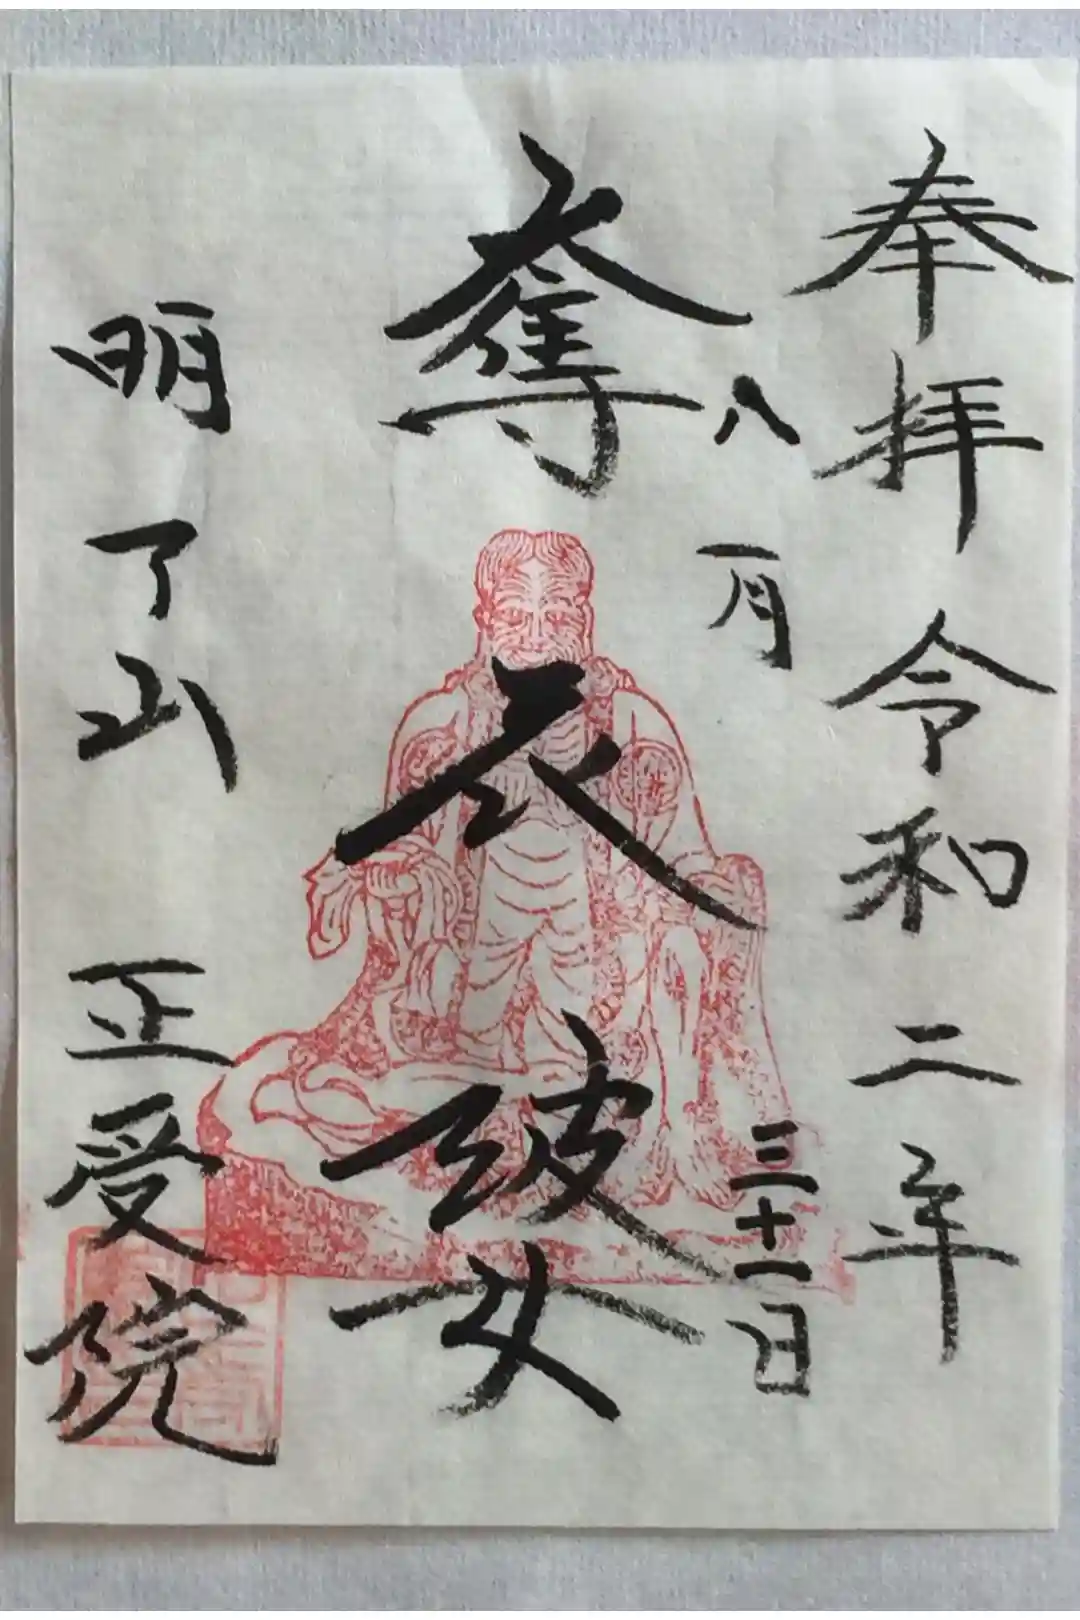 奉拝 令和二年
八月 三十一日
奪衣婆
明了山 正受院